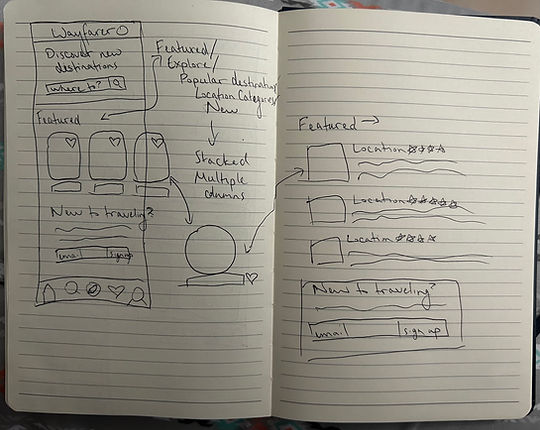 Wayfarer
Discover new
destinations
where to?
Featured
New to traveling?
email
sign up
Featured/
Explore/
Popular destinations/
Location Categories/
New
Stacked
Multiple
columns
Featured →
Location ☆☆☆☆
Location ☆☆☆☆☆
Location ☆☆☆☆
New to traveling?
email
sign up